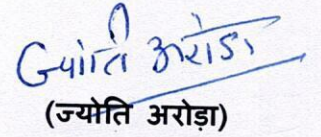 ज्योति अरोड़ा
(ज्योति अरोड़ा)